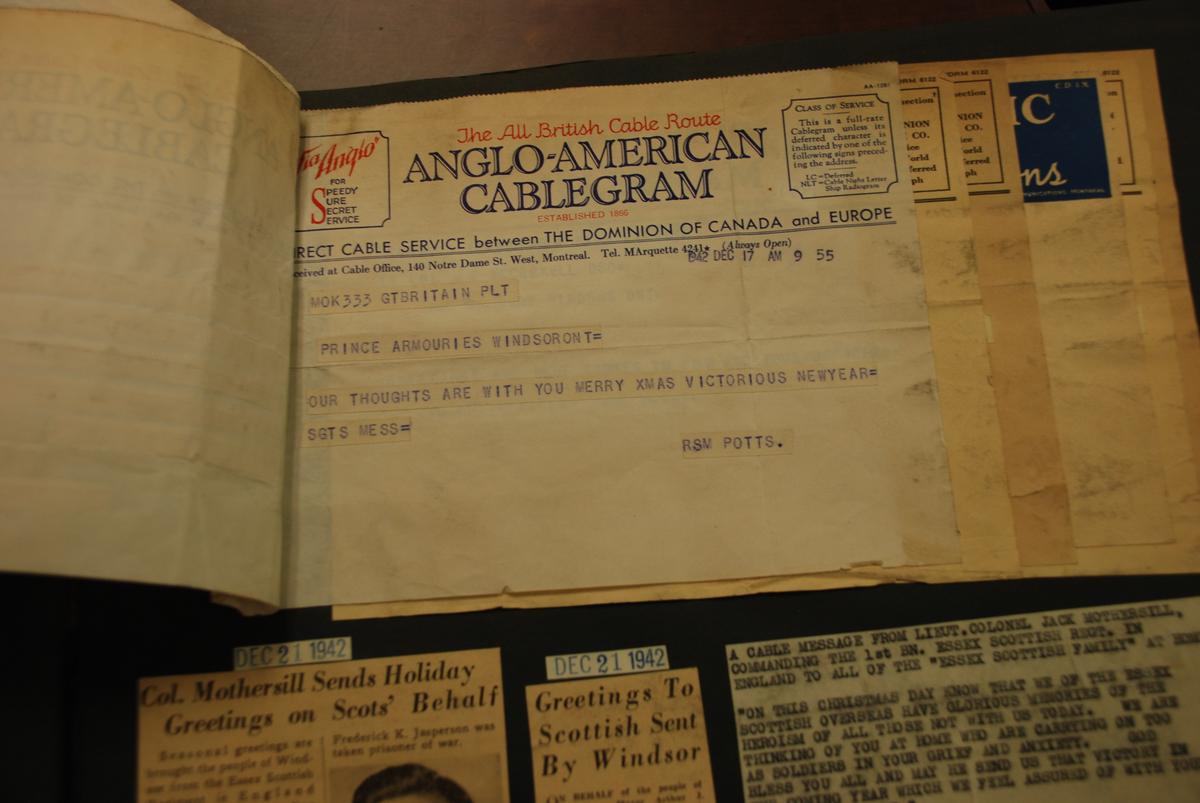 AA-1281
Via Anglo
FOR
SPEEDY
SURE
SECRET
SERVICE
The All British Cable Route
ANGLO-AMERICAN
CABLEGRAM
ESTABLISHED 1866
CLASS OF SERVICE
This is a full-rate
Cablegram unless its
deferred character is
indicated by one of the
following signs preced-
ing the address.
LC=Deferred
NLT=Cable Night Letter
Ship Radiogram
IRECT CABLE SERVICE between THE DOMINION OF CANADA and EUROPE
ceived at Cable Office, 140 Notre Dame St. West, Montreal. Tel. MArquette 4241★ (Always Open)
1942 DEC 17 AM 9 55
MOK333 GTBRITAIN PLT
PRINCE ARMOURIES WINDSORONT=
OUR THOUGHTS ARE WITH YOU MERRY XMAS VICTORIOUS NEWYEAR=
SGTS MESS=
RSM POTTS.
ORM 6122
NION
CO.
ORM 6122
NION
CO.
6122
C.D.I.X.
IC
ns
MUNICATIONS, MONTREAL
DEC 21 1942
Col. Mothersill Sends Holiday
Greetings on Scots' Behalf
Seasonal greetings are
brought the people of Wind-
sor from the Essex Scottish
in England
Frederick K. Jasperson was
taken prisoner of war.
DEC 21 1942
Greetings To
Scottish Sent
By Windsor
ON BEHALF of the people of
Arthur J.
A CABLE MESSAGE FROM LIEUT.COLONEL JACK MOTHERSILL,
COMMANDING THE 1st BN. ESSEX SCOTTISH REGT. IN
ENGLAND TO ALL OF THE "ESSEX SCOTTISH FAMILY" AT HOM
"ON THIS CHRISTMAS DAY KNOW THAT WE OF THE ESSEX
SCOTTISH OVERSEAS HAVE GLORIOUS MEMORIES OF THE
HEROISM OF ALL THOSE NOT WITH US TODAY. WE ARE
THINKING OF YOU AT HOME WHO ARE CARRYING ON TOO
AS SOLDIERS IN YOUR GRIEF AND ANXIETY. GOD
BLESS YOU ALL AND MAY HE SEND US THAT VICTORY IN
THE COMING YEAR WHICH WE FEEL ASSURED OF WITH YOUR